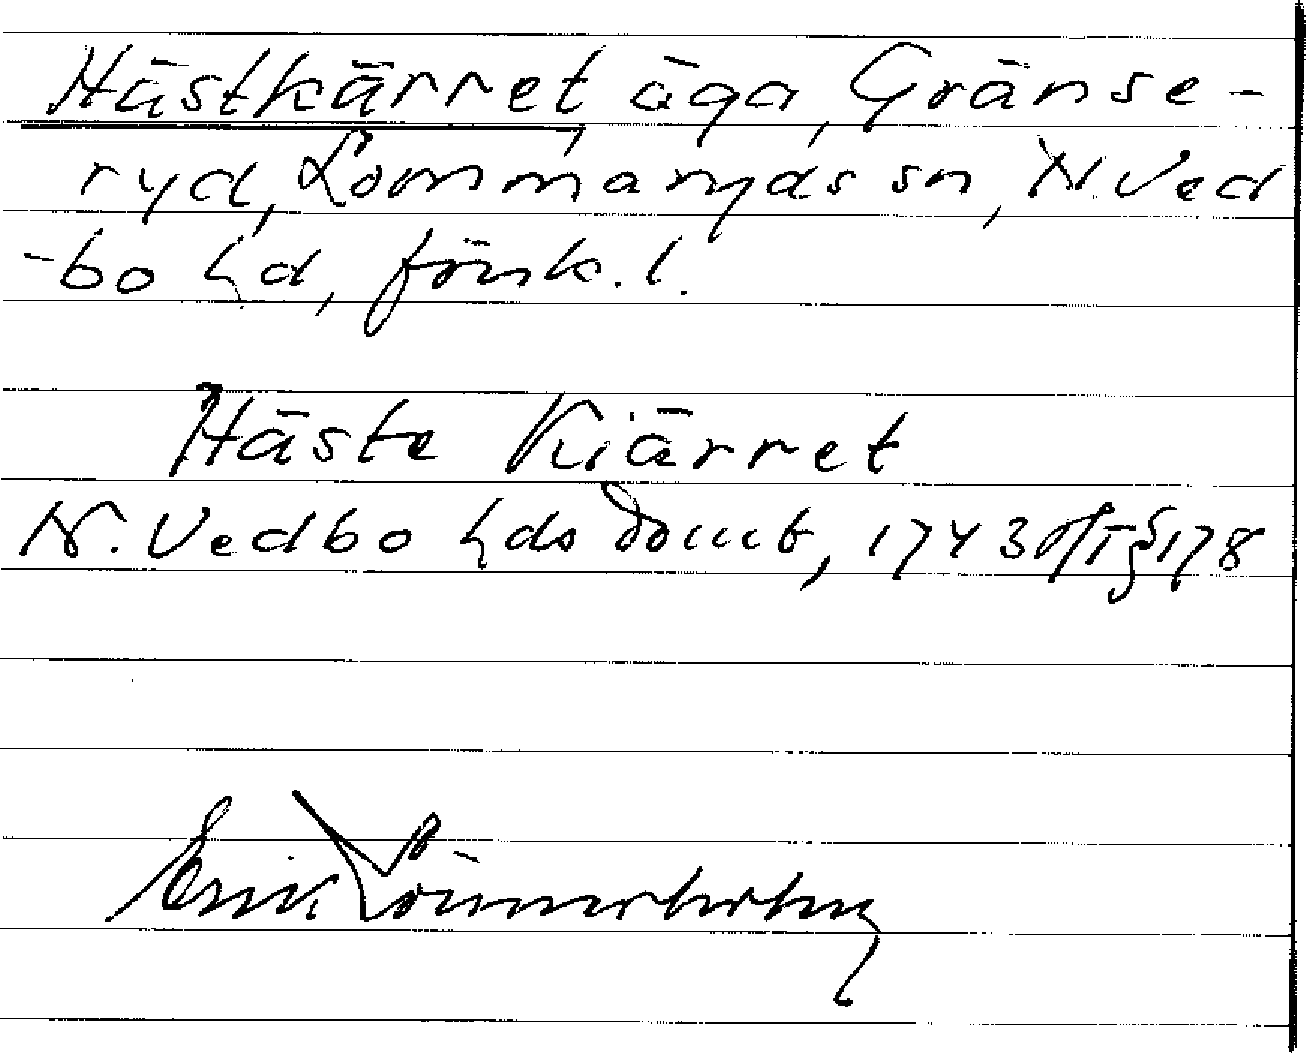 Hästkärret, äga, Gränse-
ryd, Lommaryds sn, N. Ved
-bo hd, Jönk. l.
Häste Kiärret
N. Vedbo hds domb, 1743 § 178
Erik Lönnerholm